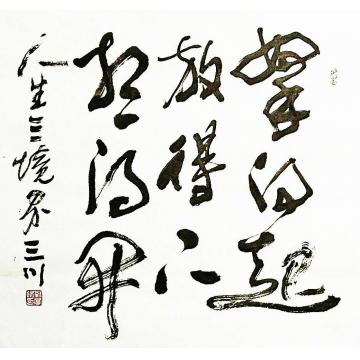 拏得起
放得下
想得开
人生三境界 三川